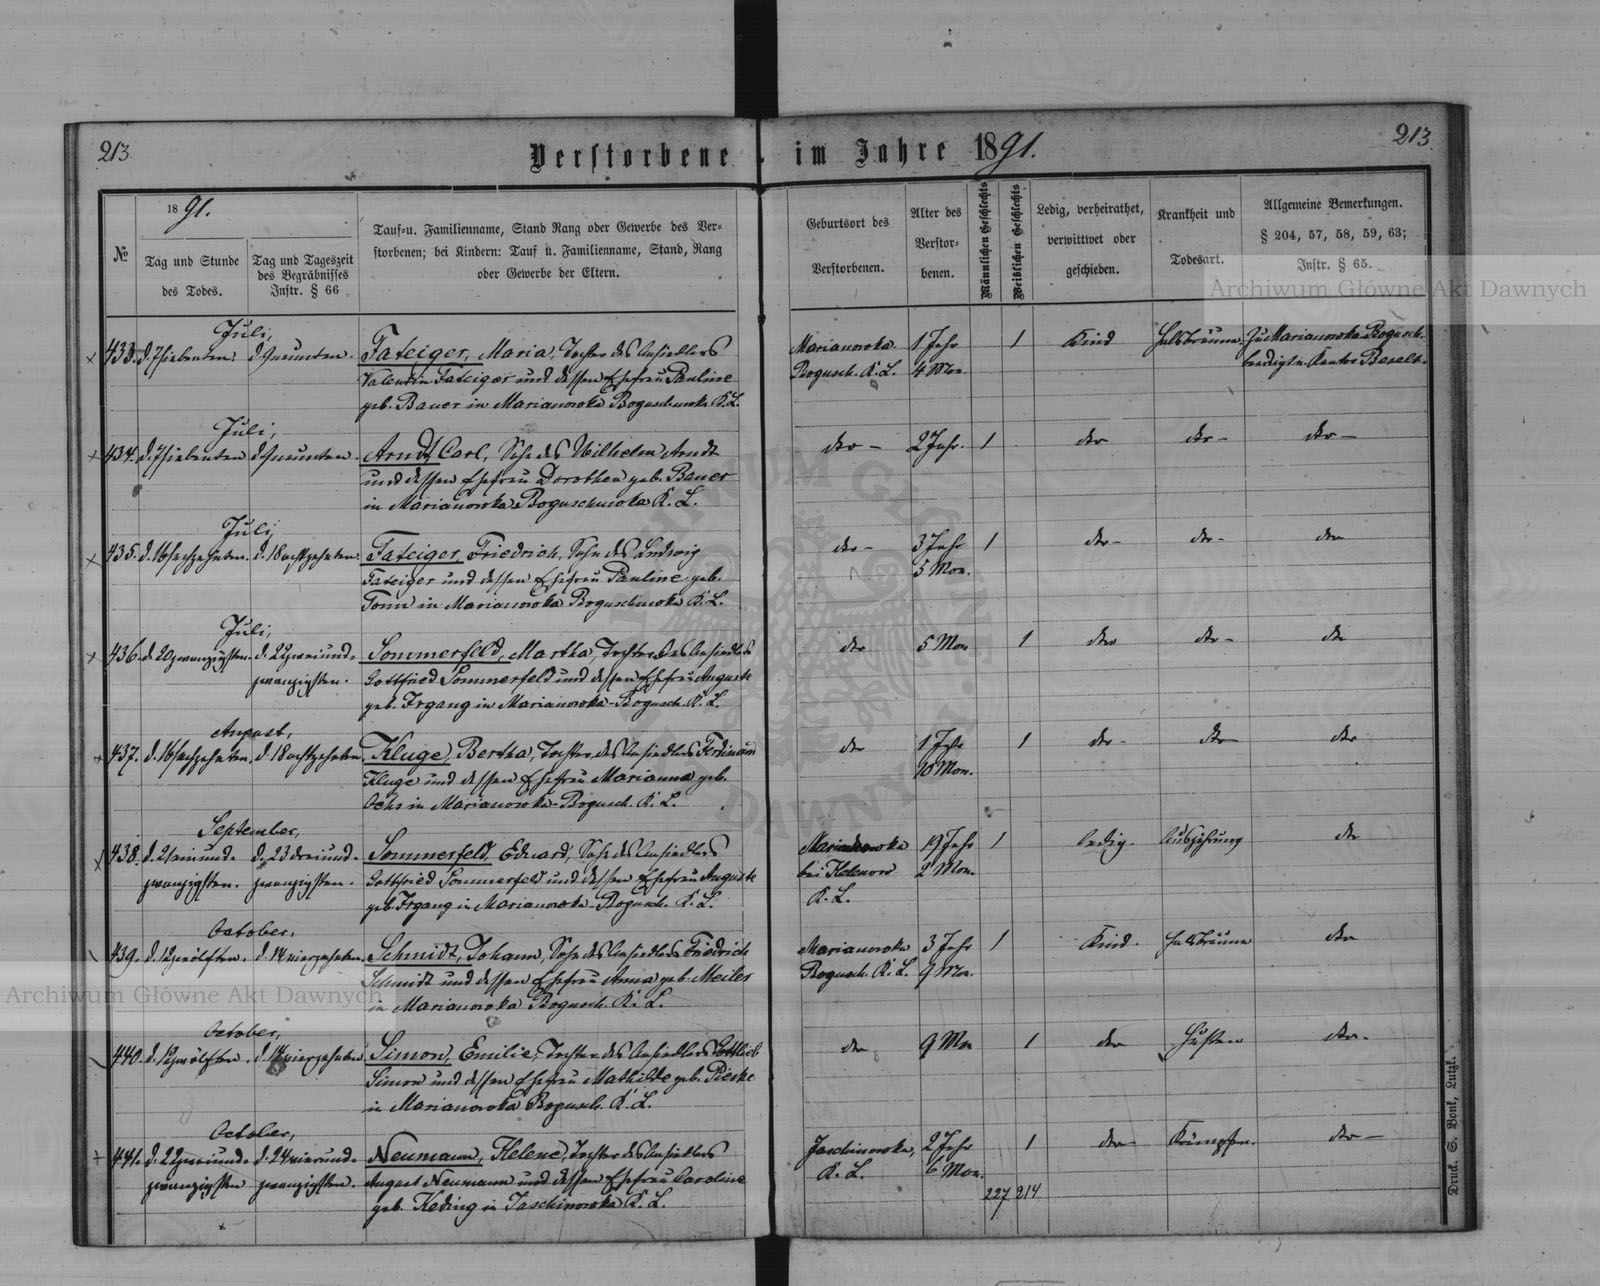 213
Verstorbene im Jahre 1891.
213
№
1891.
Tag und Stunde
des Todes.
Tag und Tageszeit
des Begräbnisses
Instr. § 66
Tauf=u. Familienname, Stand Rang oder Gewerbe des Ver=
storbenen; bei Kindern: Tauf u. Familienname, Stand, Rang
oder Gewerbe der Eltern.
Geburtsort des
Verstorbenen.
Alter des
Verstor=
benen.
Männlichen Geschlechts
Weiblichen Geschlechts
Ledig, verheirathet,
verwittwet oder
geschieden.
Krankheit und
Todesart.
Allgemeine Bemerkungen.
§ 204, 57, 58, 59, 63;
Instr. § 65.
Archiwum Główne Akt Dawnych
Juli,
433. d. 7 siebenten. d. 9 neunten. Fateiger, Maria, Tochter des Ansiedlers
Valentin Fateiger und dessen Ehefrau Pauline
geb. Bauer in Marianowka Boguschowka K. L.
Marianowka
Bogusch. K. L.
1 Jahr
4 Mon.
1
Kind
Halsbräune.
Zu Marianowka Bogusch.
beerdigt v. Kantor Beselt.
Juli,
434. d. 7 siebenten d. 9 neunten. Arndt Carl, Sohn des Wilhelm Arndt
und dessen Ehefrau Dorothea geb. Bauer
in Marianowka Boguschowka K. L.
dto - 2 Jahr. 1 dto dto - dto -
Juli,
435. d. 16 sechzehnten. d. 18 achtzehnten. Fateiger, Friedrich, Sohn des Ludwig
Fateiger und dessen Ehefrau Pauline geb.
Tonn in Marianowka Boguschowka K. L.
dto - 3 Jahr 1 dto - dto - dto
5 Mon.
Juli,
436. d. 20 zwanzigsten. d. 22 zweiund= Sommerfeld, Martha, Tochter des Ansiedlers
zwanzigsten. Gottfried Sommerfeld und dessen Ehefrau Auguste
geb. Irgang in Marianowka-Bogusch. K. L.
dto 5 Mon 1 dto dto - dto
August,
437. d. 16 sechzehnten. d. 18 achtzehnten Kluge, Bertha, Tochter des Ansiedlers Ferdinand
Kluge und dessen Ehefrau Marianna geb.
Ochs in Marianowka-Bogusch. K. L.
dto 1 Jahr 1 dto - dto dto
10 Mon.
September,
438. d. 21 einund= d. 23 dreiund= Sommerfeld, Eduard, Sohn des Ansiedlers
zwanzigsten. zwanzigsten. Gottfried Sommerfeld und dessen Ehefrau Auguste
geb. Irgang in Marianowka-Bogusch. K. L.
Marianowka 19 Jahr 1 ledig. Auszehrung dto
bei Helenow 2 Mon.
K. L.
October,
439. d. 12 zwölften. d. 14 vierzehnten. Schmidt, Johann, Sohn des Ansiedlers Friedrich
Schmidt und dessen Ehefrau Anna geb. Meiler
in Marianowka Bogusch. K. L.
Marianowka 3 Jahr 1 Kind. Halsbräune dto
Bogusch. K. L. 9 Mon.
Archiwum Główne Akt Dawnych
October,
440. d. 12 zwölften. d. 14 vierzehnten Simon, Emilie, Tochter des Ansiedlers Gottlieb
Simon und dessen Ehefrau Mathilde geb. Pieske
in Marianowka Bogusch. K. L.
dto 9 Mon 1 dto Husten dto.
October,
441. d. 22 zweiund= d. 24 vierund= Neumann, Helene, Tochter des Ansiedlers
zwanzigsten zwanzigsten. August Neumann und dessen Ehefrau Caroline
geb. Keding in Jaschinowka K. L.
Jaschinowka, 2 Jahr 1 dto Krämpfen. dto -
K. L. 6 Mon.
227 214
Druck. S. Bonk, Lutzk.